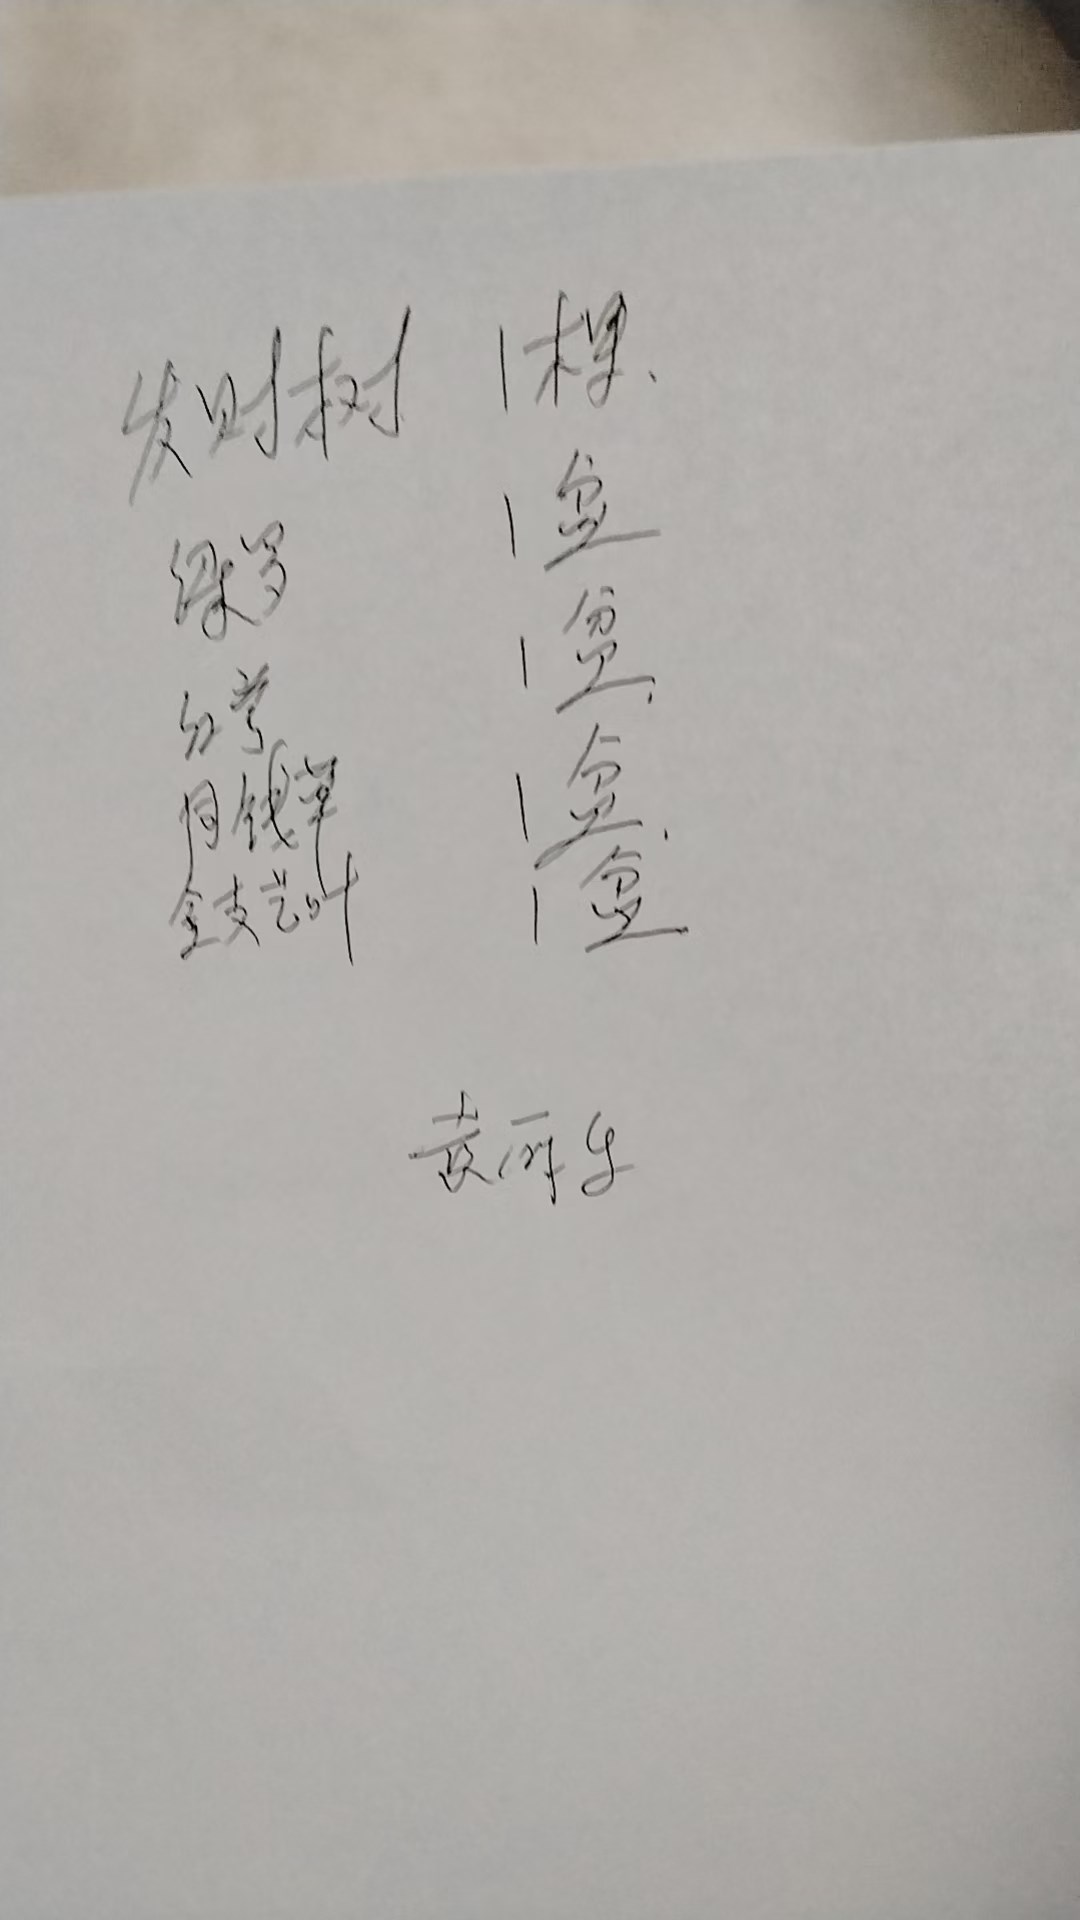 发财树 1棵.
绿罗 1盆
白芎 1盆.
同钱草 1盆.
金支艺叶 1盆
袁丽生